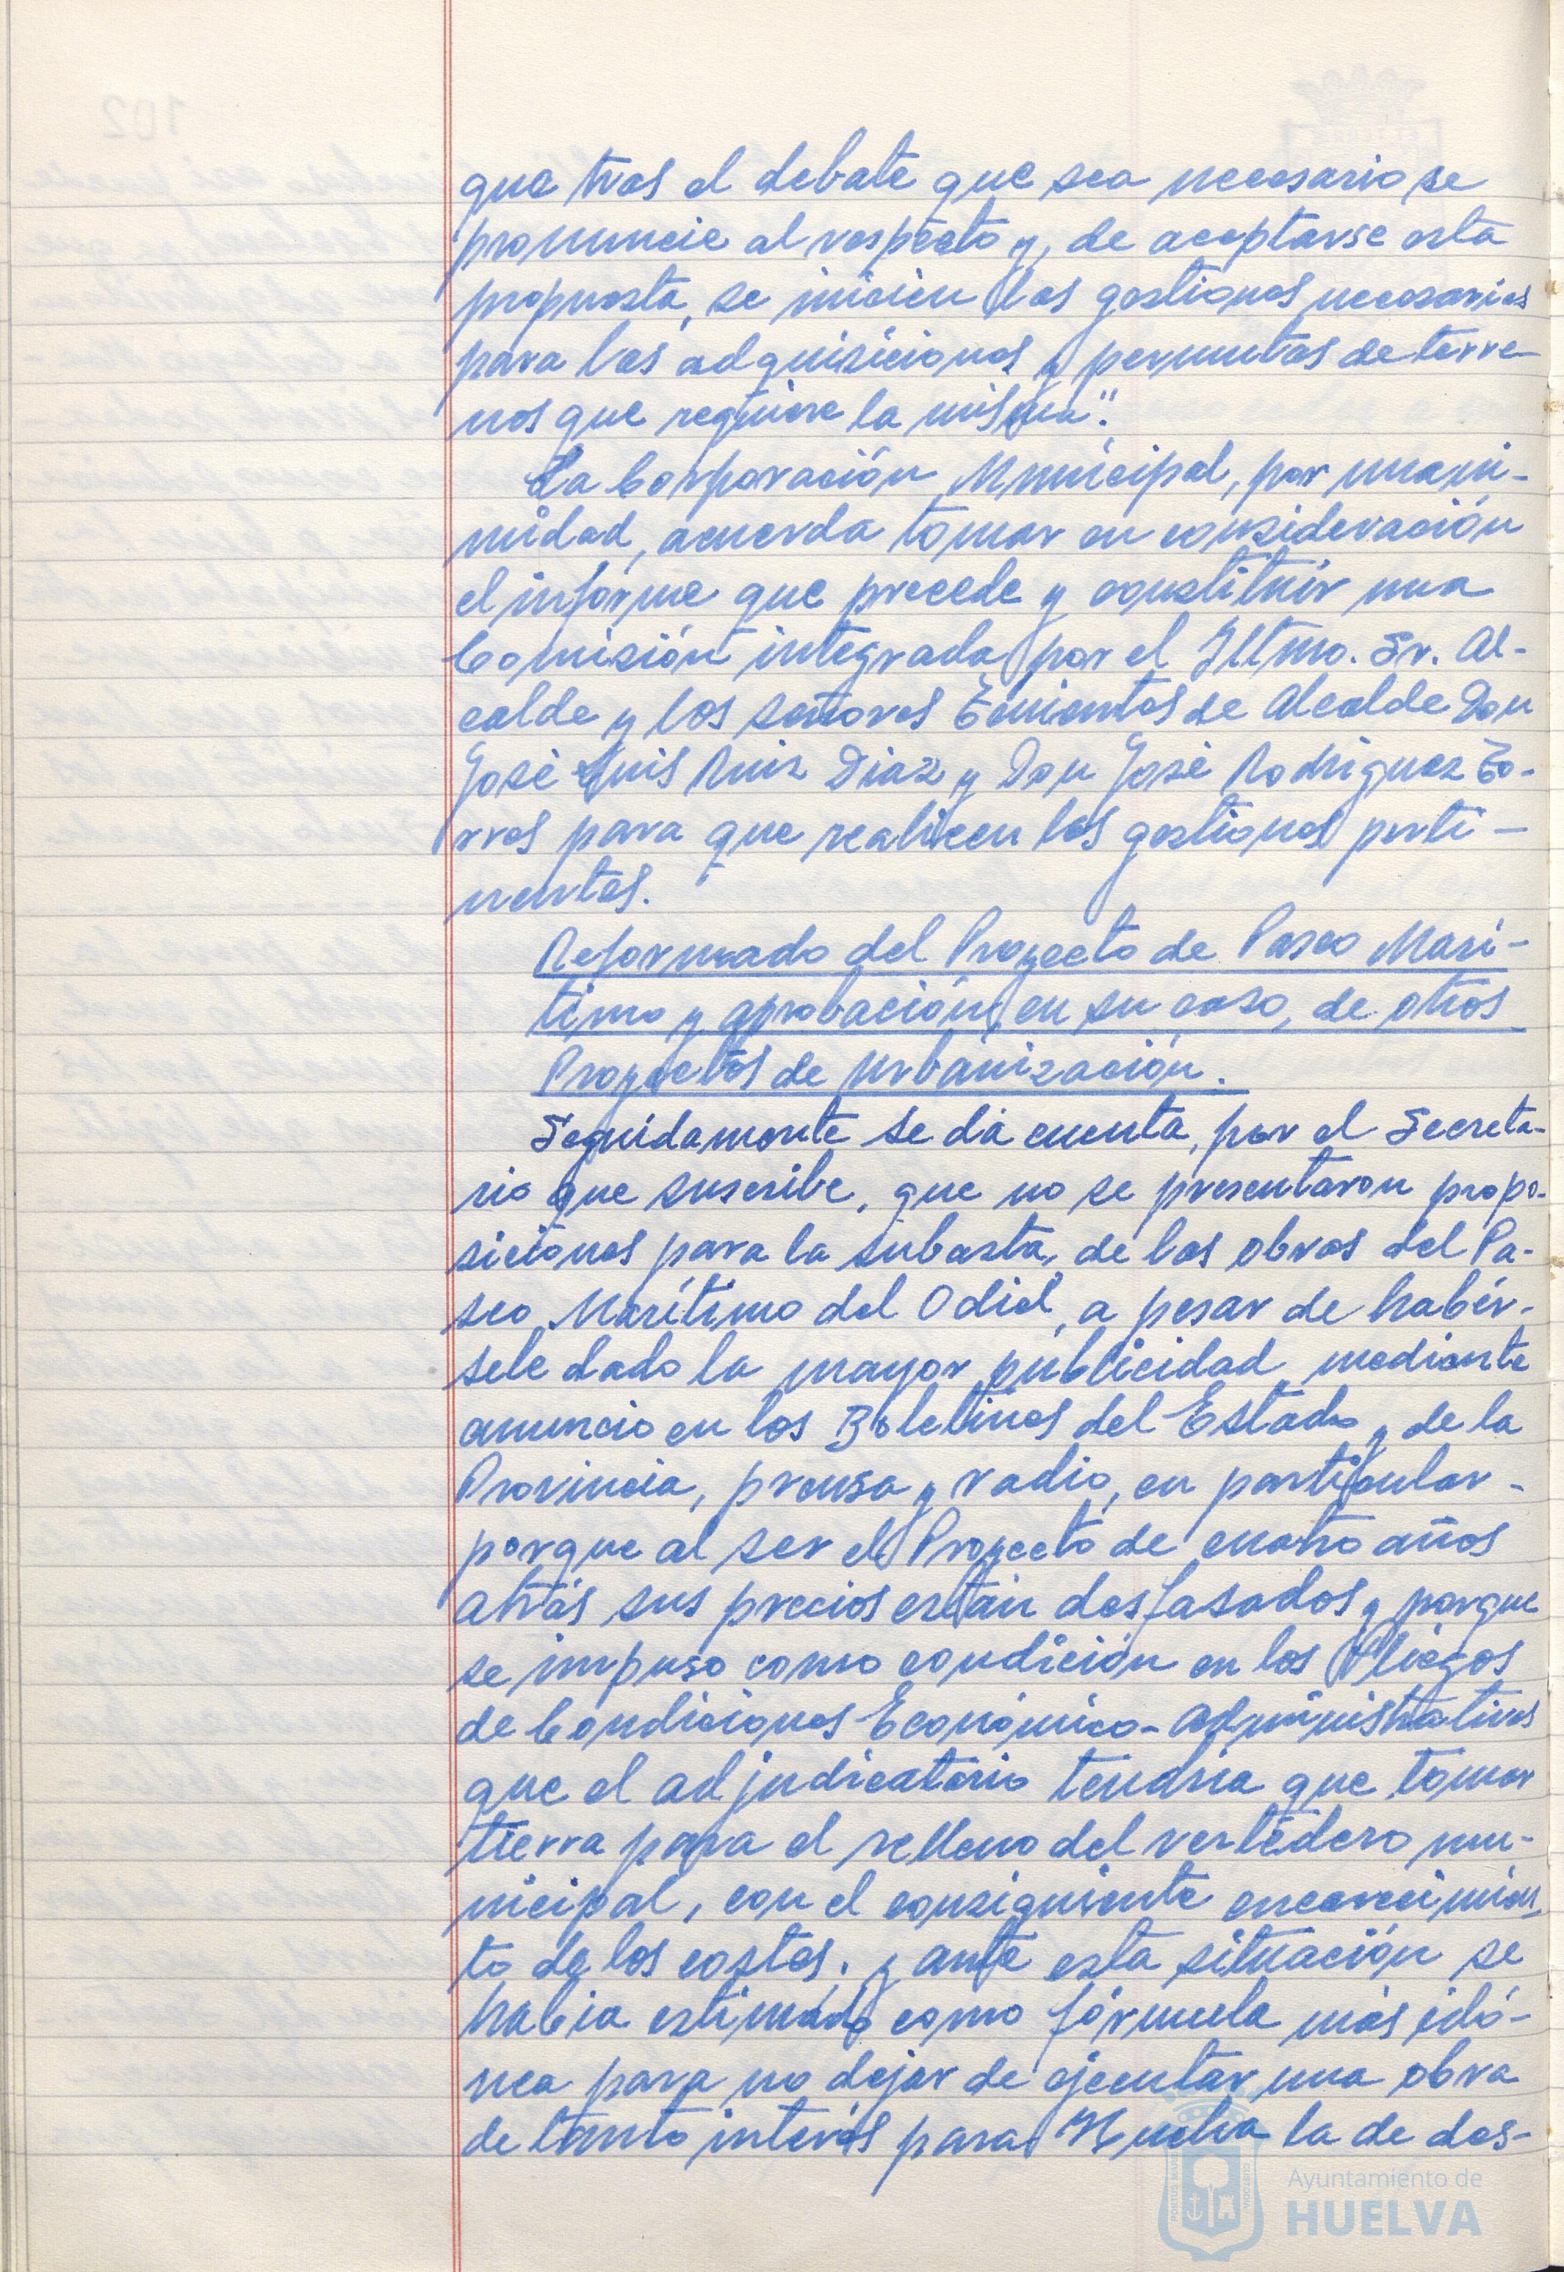 que tras el debate que sea necesario se
pronuncie al respecto y, de aceptarse esta
propuesta, se inicien las gestiones necesarias
para las adquisiciones y permutas de terre-
nos que requiere la misma".
La Corporación Municipal, por unani-
midad, acuerda tomar en consideración
el informe que precede y constituir una
Comisión integrada por el Iltmo. Sr. Al-
calde y los señores Tenientes de Alcalde Don
José Luis Ruiz Díaz y Don José Rodríguez To-
rres para que realicen las gestiones perti-
nentes.
Reformado del Proyecto de Paseo Marí-
timo y aprobación, en su caso, de otros
Proyectos de Urbanización.
Seguidamente se da cuenta, por el Secreta-
rio que suscribe, que no se presentaron propo-
siciones para la subasta, de las obras del Pa-
seo Marítimo del Odiel, a pesar de habér-
sele dado la mayor publicidad mediante
anuncio en los Boletines del Estado y de la
Provincia, prensa y radio, en particular -
porque al ser el Proyecto de cuatro años
atrás sus precios están desfasados y porque
se impuso como condición en los Pliegos
de Condiciones Económico-Administrativas
que el adjudicatario tendría que tomar
tierra para el relleno del vertedero mu-
nicipal, con el consiguiente encarecimien-
to de los costes. y ante esta situación se
había estimado como fórmula más idó-
nea para no dejar de ejecutar una obra
de tanto interés para Huelva la de des-
Ayuntamiento de
HUELVA
102